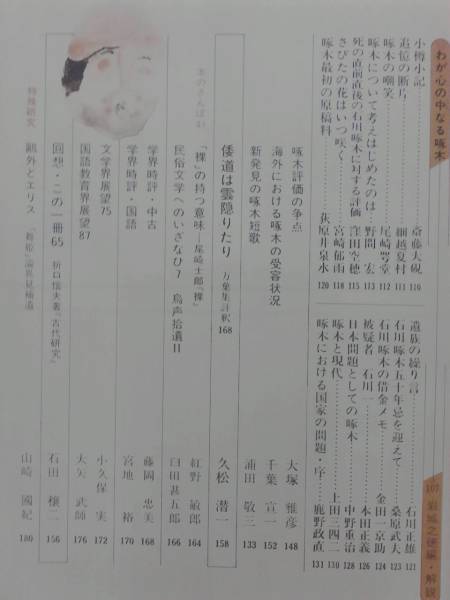 わが心の中なる啄木
小樽小記……斎藤大硯 110
追憶の断片……細越夏村 111
啄木の嘲笑……尾崎咢堂 112
啄木について考えはじめたのは……野間宏 113
死の直前直後の石川啄木に対する評価……窪田空穂 115
さびたの花はいつ咲く……宮崎郁雨 118
啄木最初の原稿料……荻原井泉水 120
107 岩城之徳編・解説
遺族の繰り言……石川正雄 121
石川啄木五十年忌を迎えて……桑原武夫 123
石川啄木の借金メモ……金田一京助 124
被疑者 石川一……本田正義 126
日本問題としての啄木……中野重治 128
啄木と現代……上田三四二 130
啄木における国家の問題・序……鹿野政直 131
啄木評価の争点 大塚雅彦 148
海外における啄木の受容状況 千葉宣一 152
新発見の啄木短歌 浦田敬三 133
倭道は雲隠りたり 万葉集註釈 168 久松潜一 158
「裸」の持つ意味―尾崎士郎「裸」 紅野敏郎 164
民俗文学へのいざなひ7 鳥声拾遺II 臼田甚五郎 166
学界時評・中古 藤岡忠美 168
学界時評・国語 宮地裕 170
文学界展望75 小久保実 172
国語教育界展望87 大矢武師 176
回想・この一冊65 折口信夫著『古代研究』 石田穣二 156
特殊研究 鷗外とエリス 山崎國紀 180